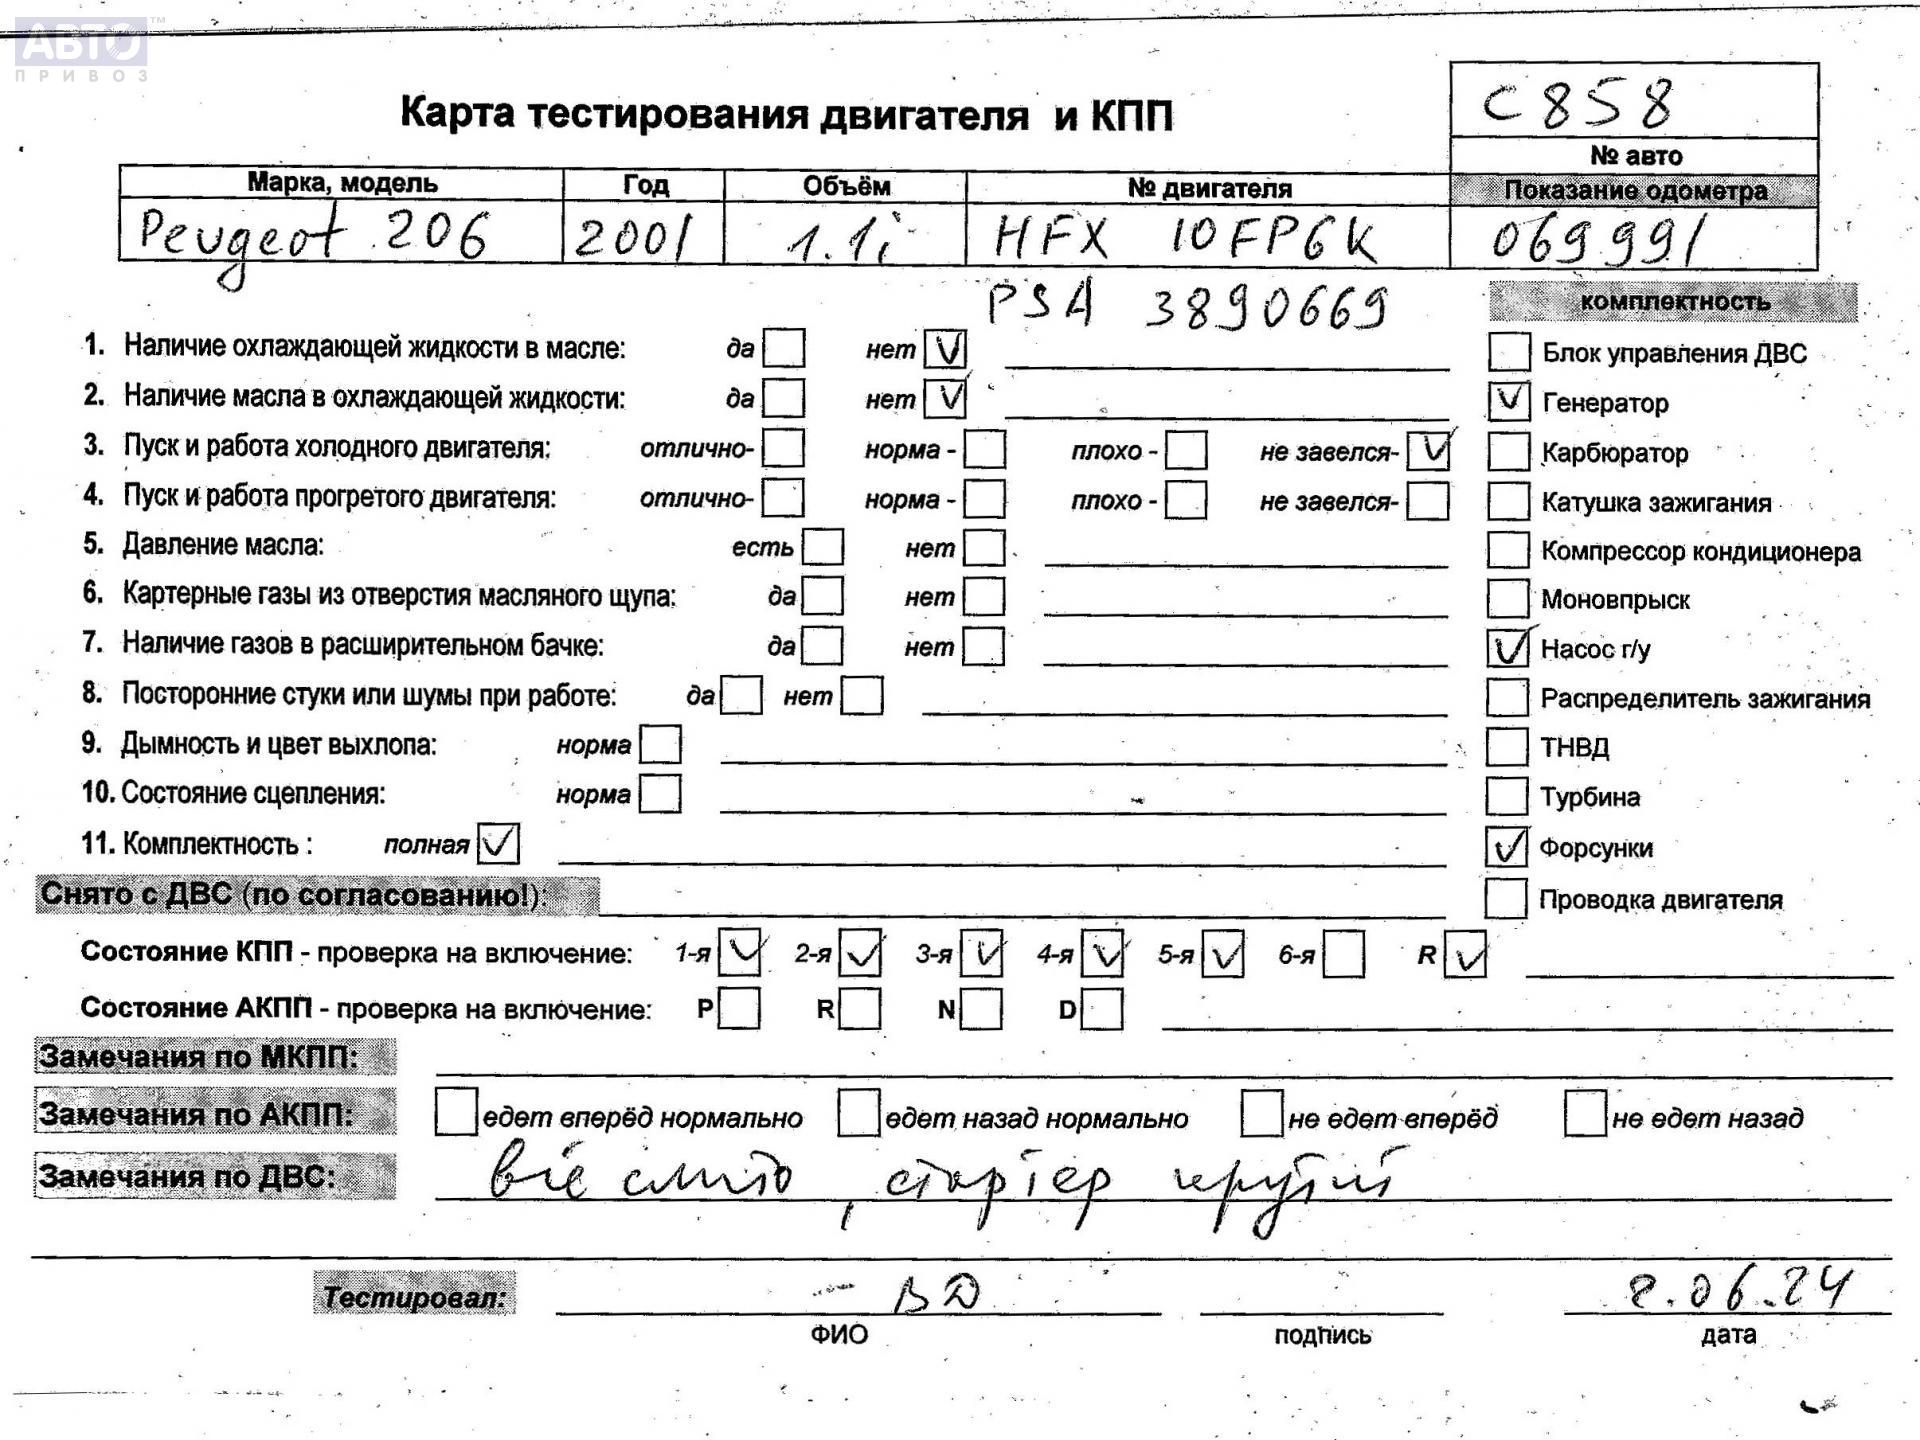 АВТО™
ПРИВОЗ
С858
Карта тестирования двигателя и КПП
№ авто
Марка, модель Год Объём № двигателя Показание одометра
Peugeot 206 2001 1.1i HFX 10FP6K 069991
PSA 3890669
комплектность
1. Наличие охлаждающей жидкости в масле: да нет V Блок управления ДВС
2. Наличие масла в охлаждающей жидкости: да нет V V Генератор
3. Пуск и работа холодного двигателя: отлично- норма - плохо - не завелся- V Карбюратор
4. Пуск и работа прогретого двигателя: отлично- норма - плохо - не завелся- Катушка зажигания
5. Давление масла: есть нет Компрессор кондиционера
6. Картерные газы из отверстия масляного щупа: да нет Моновпрыск
7. Наличие газов в расширительном бачке: да нет V Насос г/у
8. Посторонние стуки или шумы при работе: да нет Распределитель зажигания
9. Дымность и цвет выхлопа: норма ТНВД
10. Состояние сцепления: норма Турбина
11. Комплектность : полная V V Форсунки
Снято с ДВС (по согласованию!): Проводка двигателя
Состояние КПП - проверка на включение: 1-я V 2-я V 3-я V 4-я V 5-я V 6-я R V
Состояние АКПП - проверка на включение: P R N D
Замечания по МКПП:
Замечания по АКПП: едет вперёд нормально едет назад нормально не едет вперёд не едет назад
Замечания по ДВС: , стартер
Тестировал: ВД 2.06.24
ФИО подпись дата